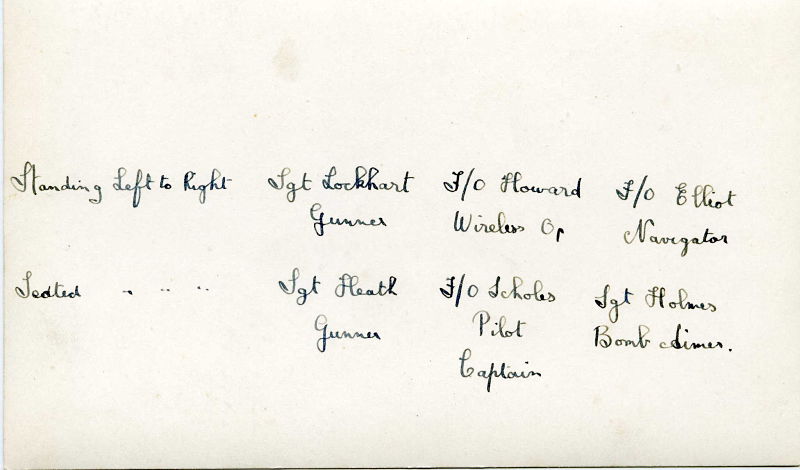 Standing Left to Right Sgt Lockhart F/O Howard F/O Elliot
Gunner Wireless Op Navigator
Seated " " " Sgt Heath F/O Scholes Sgt Holmes
Gunner Pilot Bomb Aimer.
Captain